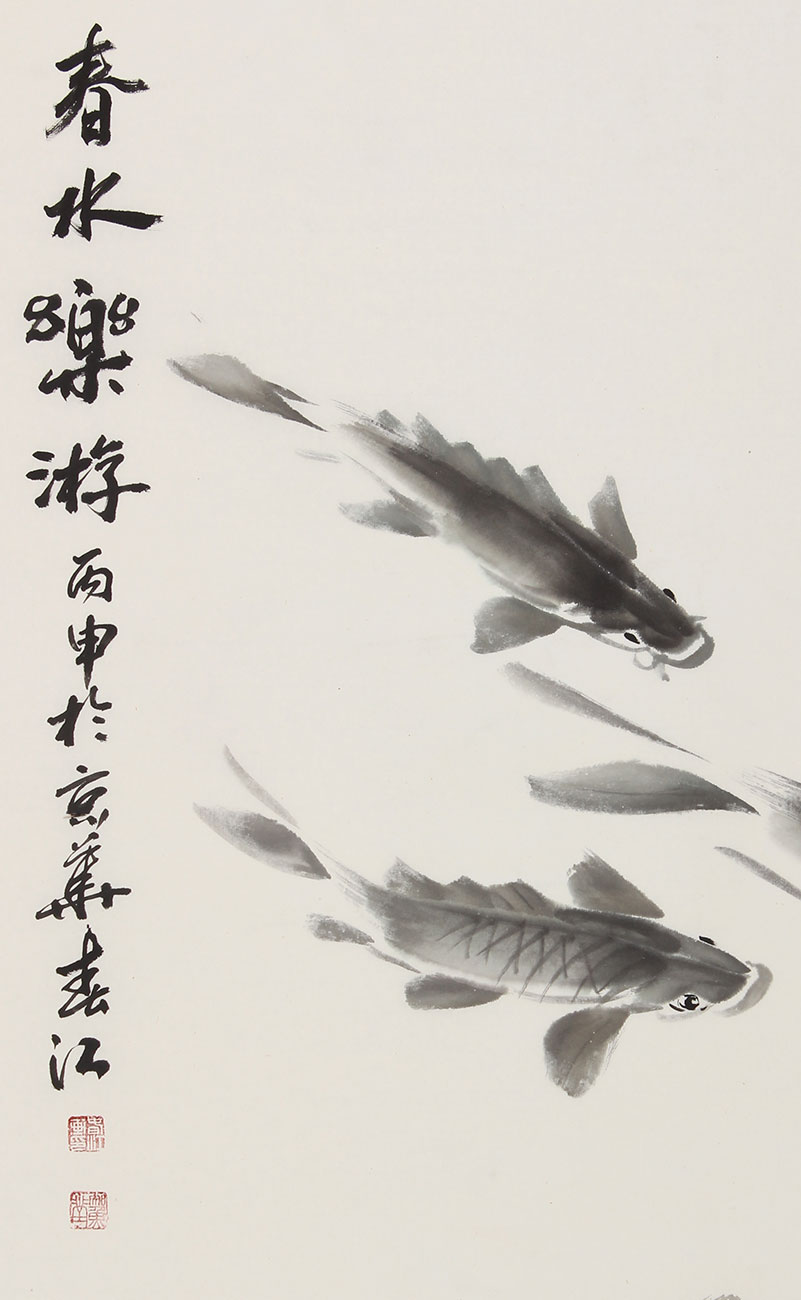 春水樂游丙申於京華春江